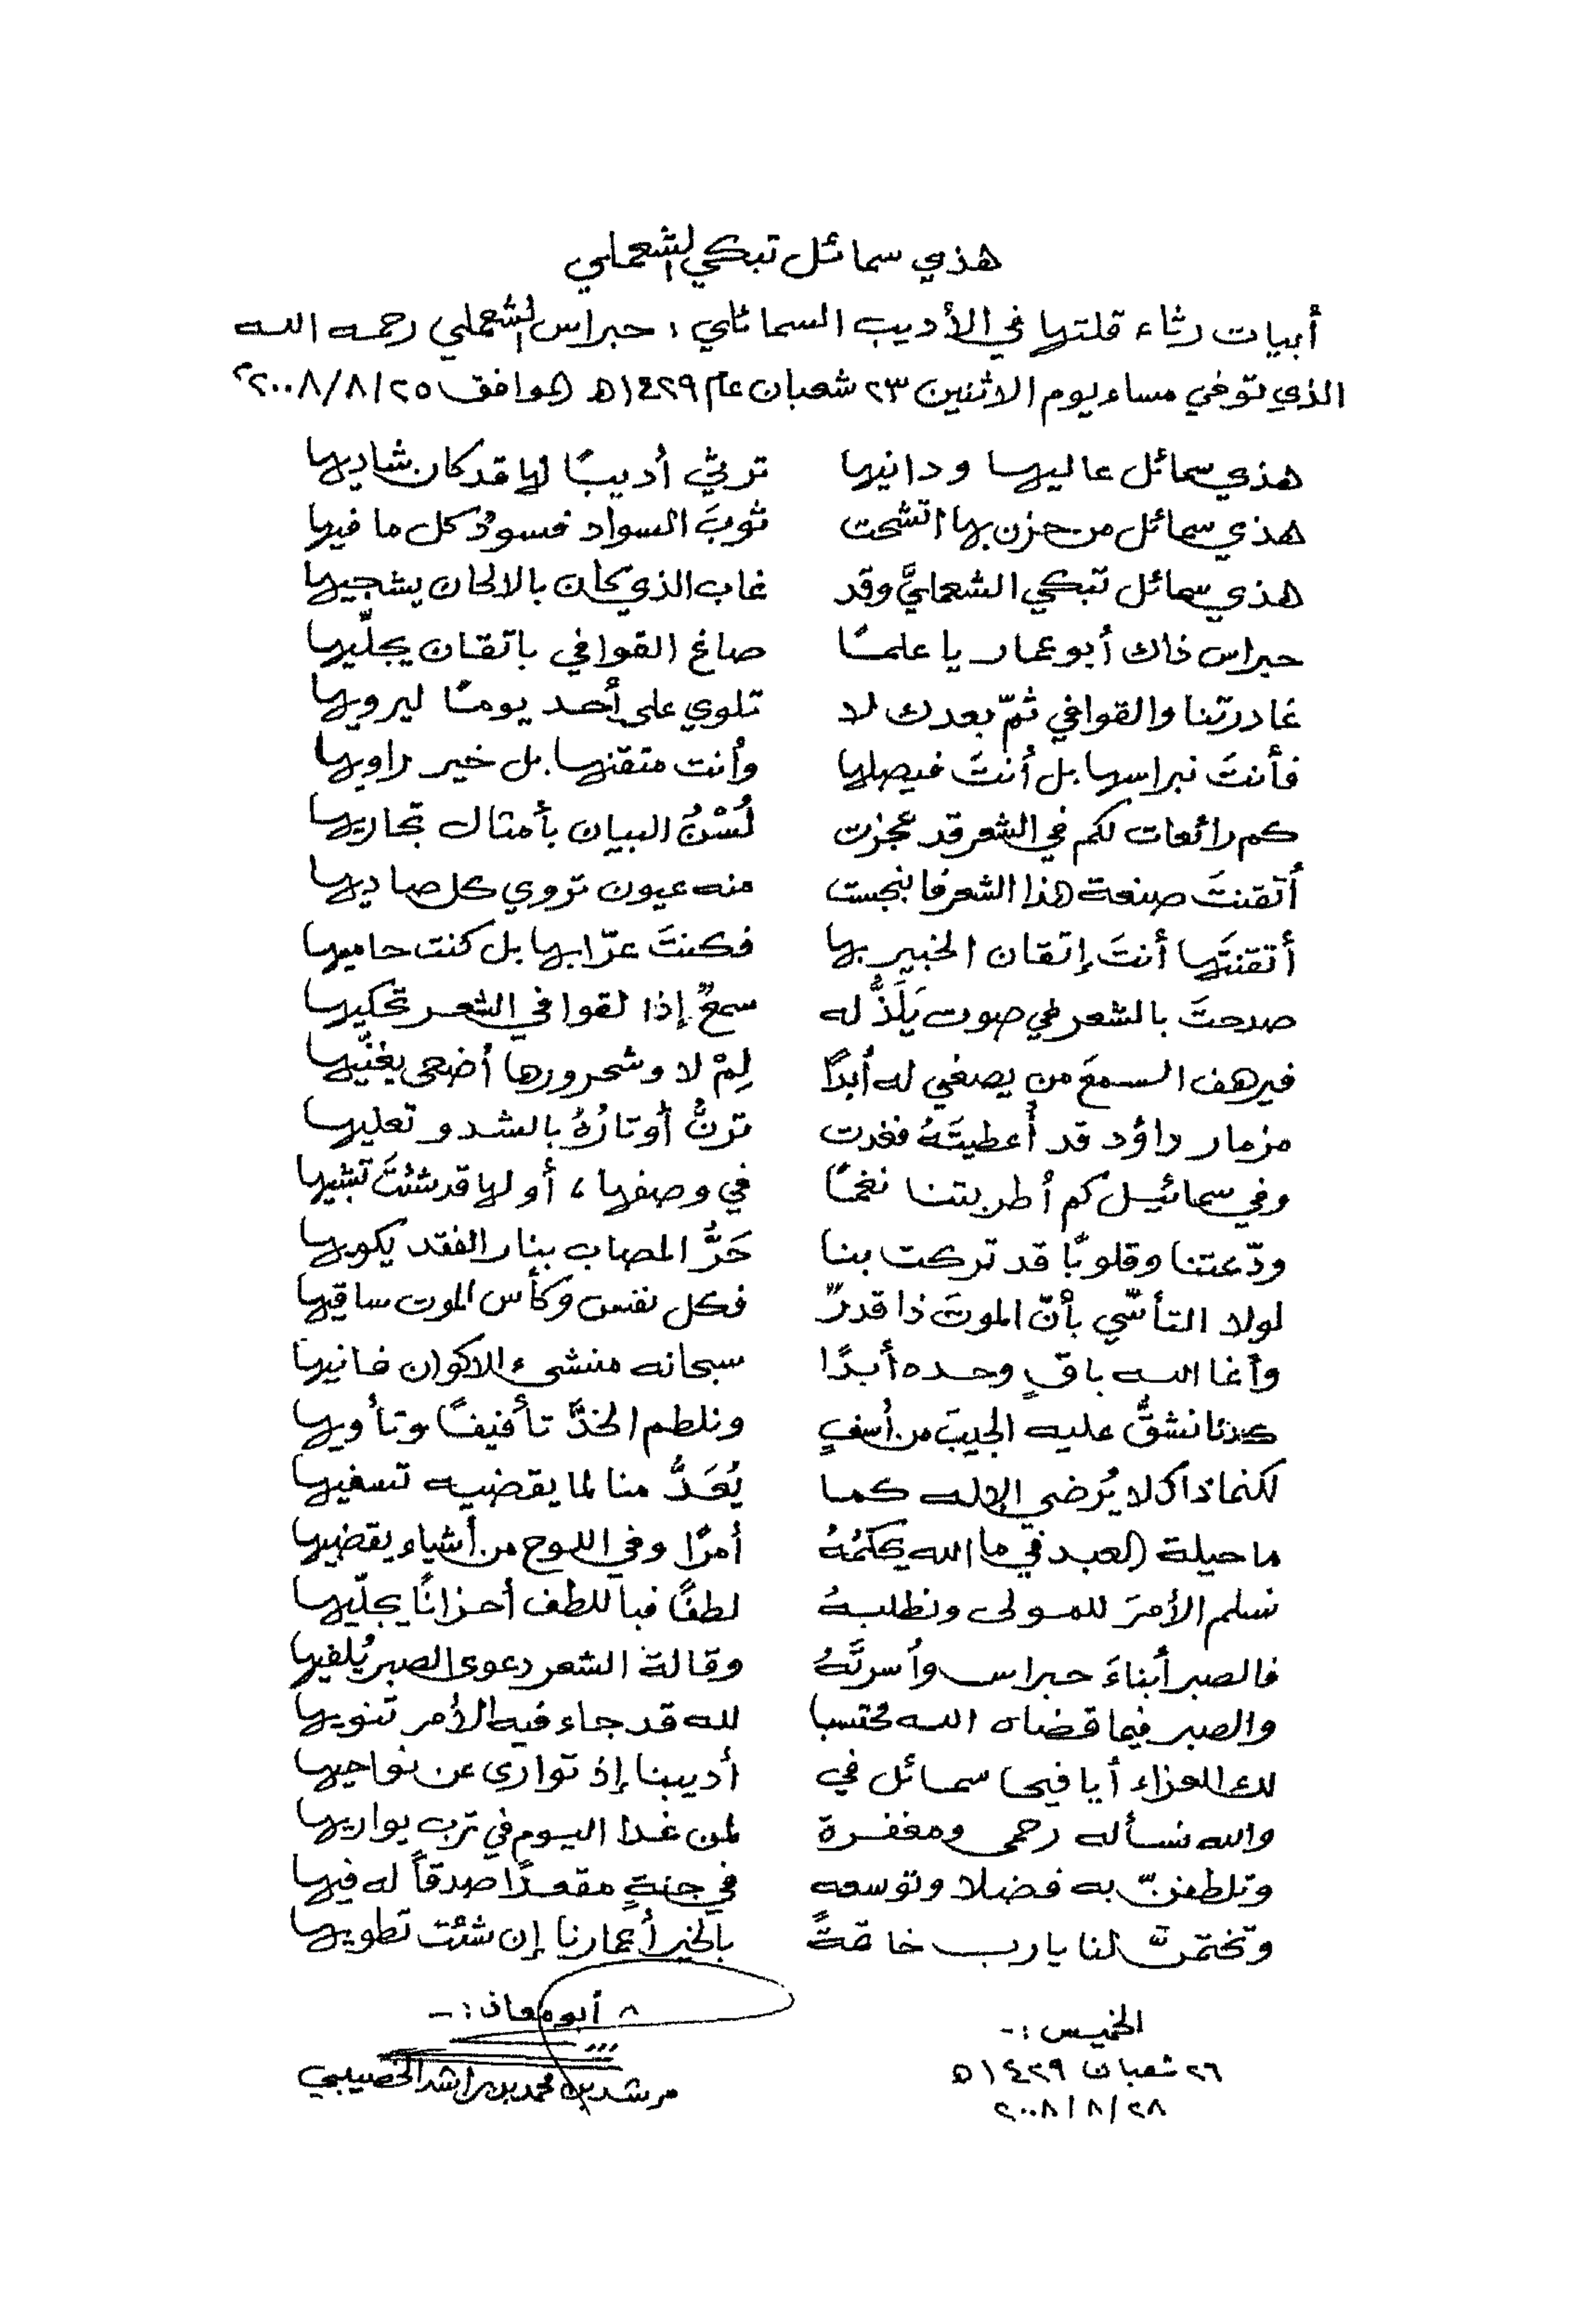 هذي سمائل تبكي الشعملي
أبيات رثاء قلتها في الأديب السمائلي : حبراس الشعملي رحمه الله
الذي توفي مساء يوم الاثنين ٢٣ شعبان عام ١٤٢٩ه الموافق ٢٠٠٨/٨/٢٥م
هذي سمائل عاليها ودانيها ترثي أديبًا لها قد كان شاديها
هذي سمائل من حزن بها اتشحت ثوبَ السواد فسودٌ كل ما فيها
هذي سمائل تبكي الشعمليَّ وقد غاب الذي كان بالالحان يشجيها
حبراس ذاك أبو عمار يا علمًا صاغ القوافي باتقان يجلّيها
غادرتنا والقوافي ثمّ بعدك لا تلوي على أحد يومًا ليرويها
فأنتَ نبراسها بل أنتَ فيصلها وأنت متقنها بل خير راويها
كم رائعات لكم في الشعر قد عجزت لُسْنُ البيان بأمثال تجاريها
أتقنتَ صنعة هذا الشعر فانبجست منه عيون تروي كل صاديها
أتقنتَها أنتَ إتقان الخبير بها فكنتَ عرّابها بل كنت حاميها
صدحتَ بالشعر في صوت يَلَذُّ له سمعٌ إذا لقوافي الشعر تحكيها
فيرهف السمعَ من يصغي له أبدًا لِمْ لا وشحرورها أضحى يغنّيها
مزمار داؤد قد أعطيتَهُ فغدت ترنُّ أوتارُهُ بالشدو تعليها
وفي سمائيل كم أطربتنا نغمًا في وصفها ، أو لها قد شئتَ تبثيها
ودّعتنا وقلوبًا قد تركت بنا حَرُّ المصاب بنار الفقد يكويها
لولا التأسّي بأنّ الموتَ ذا قدرٌ فكل نفس وكأس الموت ساقيها
وانما الله باقٍ وحده أبدًا سبحانه منشىء الاكوان فانيها
كدنا نشقُّ عليه الجيبَ من أسفٍ ونلطم الخدَّ تأفيفًا وتأويها
لكنما ذاك لا يُرضي الإله كما يُعَدُّ منا لما يقضيه تسفيها
ما حيلة العبد في ما الله يحكمُهُ أمرًا وفي اللوح من أشياء يقضيها
نسلم الأمرَ للمولى ونطلبهُ لطفًا فبا للطف أحزانًا يجلّيها
فالصبر أبناءَ حبراس وأسرتَهُ وقالة الشعر دعوى الصبر يُلفيها
والصبر فيما قضاه الله محتسبا لله قد جاء فيه الأمر تنويها
لك العزاء أيا فيحا سمائل في أديبنا إذ توارى عن نواحيها
والله نسأله رحمى ومغفرة لمن غدا اليوم في ترب يواريها
وتلطفنّ به فضلا وتوسعه في جنةٍ مقعدًا صدقاً له فيها
وتختمنّ لنا يا رب خاتمةً بالخير أعمارنا إن شئت تطويها
الخميس :-
٢٦ شعبان ١٤٢٩ه
٢٠٠٨/٨/٢٨
أبو معاذ :-
مرشد بن محمد بن راشد الخصيبي